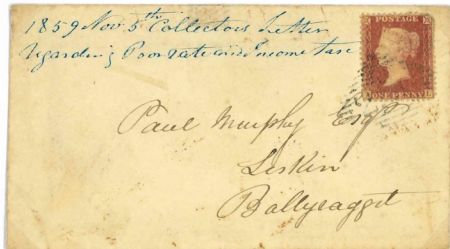 1859 Nov 5th Collectors Letter
regarding Poor rate and Income Tax
POSTAGE
ONE PENNY
Paul Murphy Esqr
Liskin
Ballyragget